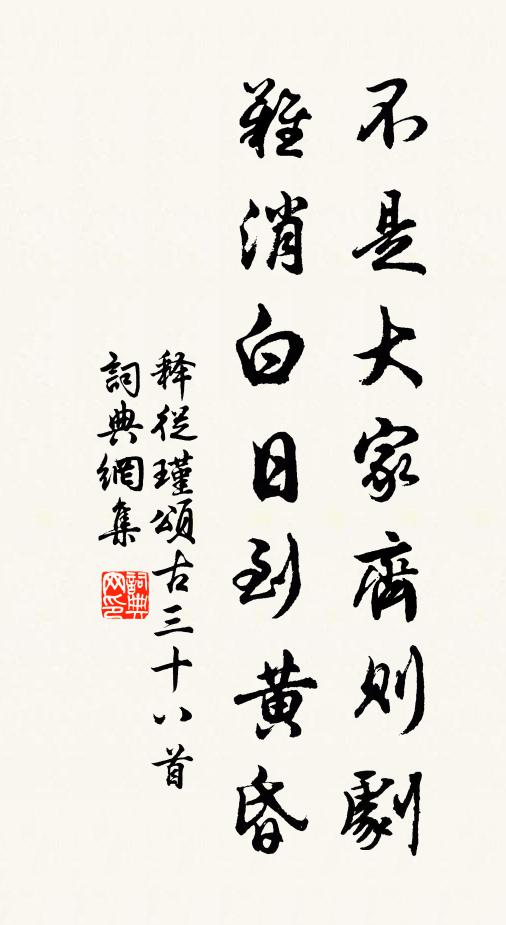 不是大家齊則劇
難消白日到黄昏
释從瑾頌古三十八首
詞典網集
詞典网印